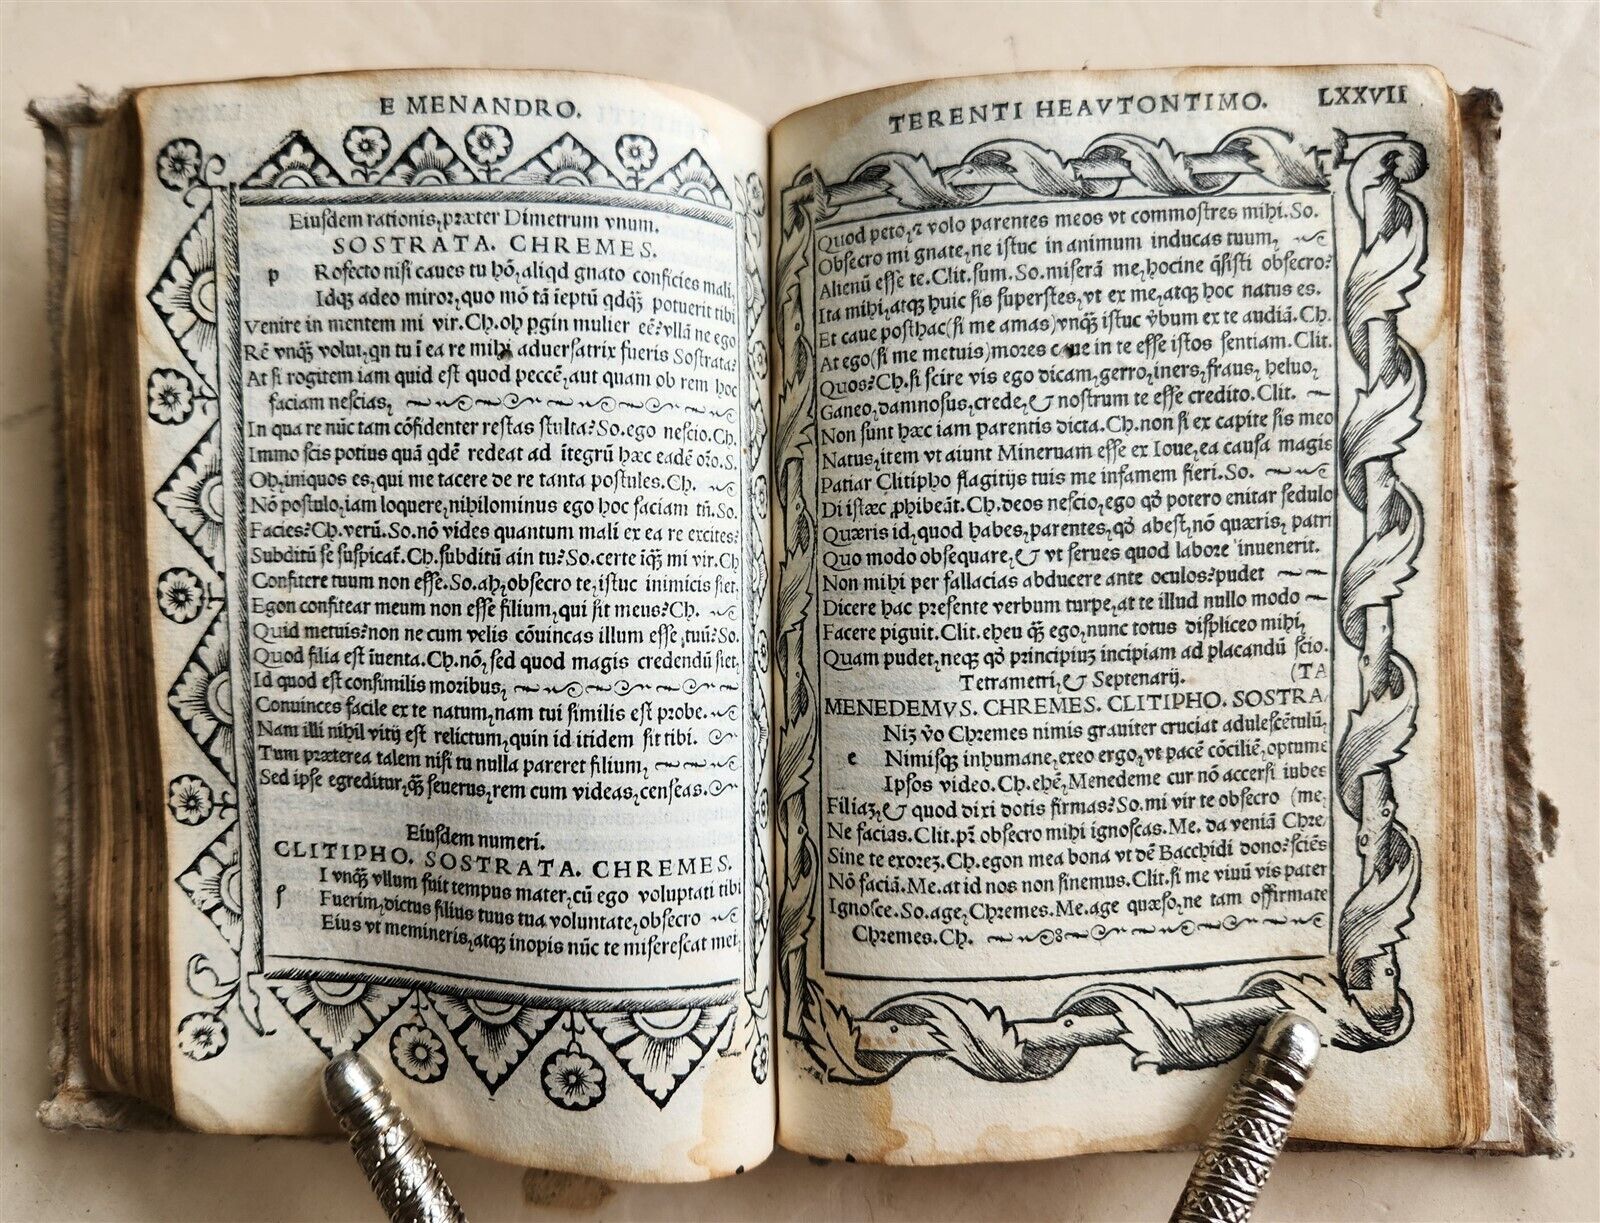 E MENANDRO.
Eiusdem rationis, præter Dimetrum vnum.
SOSTRATA. CHREMES.
p Rofecto nisi caues tu hõ, aliqd gnato conficies mali,
Idq; adeo miror, quo mõ tã ieptũ qdq̃; potuerit tibi
Venire in mentem mi vir. Ch. oh pgin mulier eẽ? vllã ne ego
Rẽ vnq̃; volui, qn tu ĩ ea re mihi aduersatrix fueris Sostrata?
At si rogitem iam quid est quod peccẽ, aut quam ob rem hoc
faciam nescias,
In qua re nũc tam cõfidenter restas stulta? So. ego nescio. Ch.
Immo scis potius quã qdẽ redeat ad ĩtegrũ hæc eadẽ orõ. S.
Oh, iniquos es, qui me tacere de re tanta postules. Ch.
Nõ postulo, iam loquere, nihilominus ego hoc faciam tñ. So.
Facies? Ch. verũ. So. nõ vides quantum mali ex ea re excites?
Subditũ se suspicat̃. Ch. subditũ ain tu? So. certe iq̃; mi vir. Ch
Confitere tuum non esse. So. ah, obsecro te, istuc inimicis siet,
Egon confitear meum non esse filium, qui sit meus? Ch.
Quid metuis? non ne cum velis cõuincas illum esse, tuũ? So.
Quod filia est ĩuenta. Ch. nõ, sed quod magis credendũ siet,
Id quod est consimilis moribus,
Conuinces facile ex te natum, nam tui similis est probe.
Nam illi nihil vitij est relictum, quin id itidem sit tibi.
Tum præterea talem nisi tu nulla pareret filium,
Sed ipse egreditur, q̃; seuerus, rem cum videas, censeas.
Eiusdem numeri.
CLITIPHO. SOSTRATA. CHREMES.
I vnq̃; vllum fuit tempus mater, cũ ego voluptati tibi
s Fuerim, dictus filius tuus tua voluntate, obsecro
Eius vt memineris, atq; inopis nũc te miserescat mei,
TERENTI HEAVTONTIMO. LXXVII
Quod peto, & volo parentes meos vt commostres mihi. So.
Obsecro mi gnate, ne istuc in animum inducas tuum,
Alienũ esse te. Clit. sum. So. miserã me, hocine q̃sisti obsecro?
Ita mihi, atq; huic sis superstes, vt ex me, atq; hoc natus es.
Et caue posthac (si me amas) vnq̃; istuc v̓bum ex te audiã. Ch.
At ego (si me metuis) mores caue in te esse istos sentiam. Clit.
Quos? Ch. si scire vis ego dicam, gerro, iners, fraus, heluo,
Ganeo, damnosus, crede, & nostrum te esse credito. Clit.
Non sunt hæc iam parentis dicta. Ch. non si ex capite sis meo
Natus, item vt aiunt Mineruam esse ex Ioue, ea causa magis
Patiar Clitipho flagitijs tuis me infamem fieri. So.
Di istæc ꝓhibeãt. Ch. deos nescio, ego qð potero enitar sedulo
Quæris id, quod habes, parentes, qð abest, nõ quæris, patri
Quo modo obsequare, & vt serues quod labore inuenerit.
Non mihi per fallacias abducere ante oculos? pudet
Dicere hac presente verbum turpe, at te illud nullo modo
Facere piguit. Clit. eheu q̃; ego, nunc totus displiceo mihi,
Quam pudet, neq; qð principiuȝ incipiam ad placandũ scio.
Tetrametri, & Septenarij. (TA
MENEDEMVS. CHREMES. CLITIPHO. SOSTRA/
Niȝ v̓o Chremes nimis grauiter cruciat adulescẽtulũ,
e Nimisq; inhumane, exeo ergo, vt pacẽ cõciliẽ, optume
Ipsos video. Ch. ehẽ, Menedeme cur nõ accersi iubes
Filiaȝ, & quod dixi dotis firmas? So. mi vir te obsecro (me,
Ne facias. Clit. pr̃ obsecro mihi ignoscas. Me. da veniã Chre/
Sine te exoreȝ. Ch. egon mea bona vt dẽ Bacchidi dono? sciẽs
Nõ faciã. Me. at id nos non sinemus. Clit. si me viuũ vis pater
Ignosce. So. age, Chremes. Me. age quæso, ne tam offirmate
Chremes. Ch.